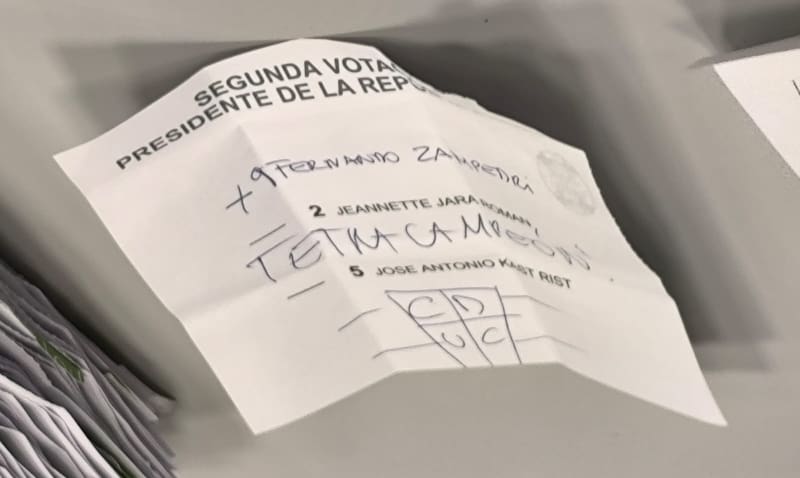 SEGUNDA VOTA
PRESIDENTE DE LA REP
+ 9 FERNANDO ZAMPEDRI
2 JEANNETTE JARA ROMAN
TETRACAMPEON
5 JOSE ANTONIO KAST RIST
C D
U C